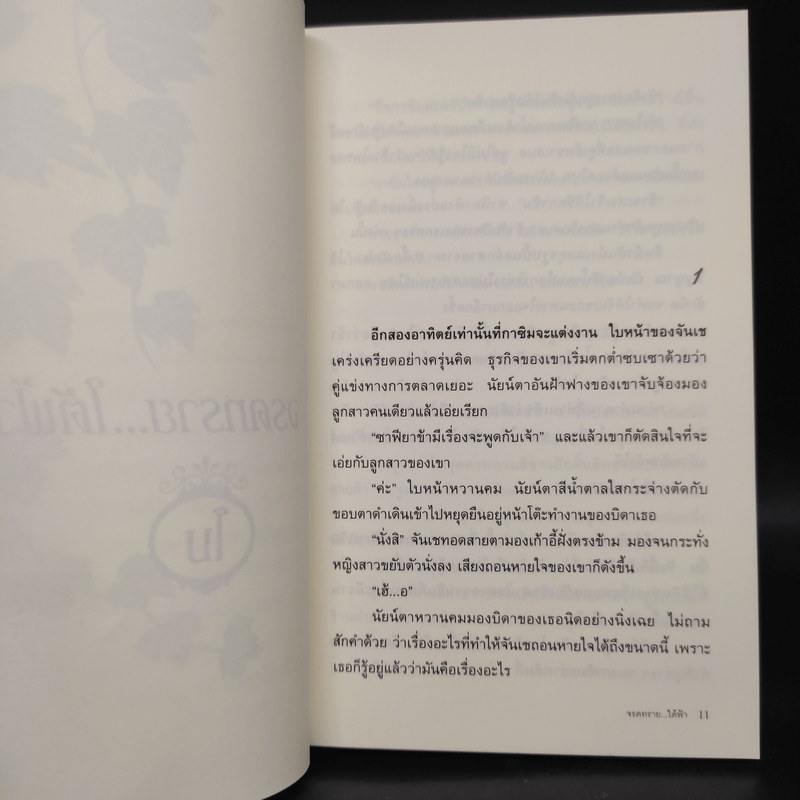 1
อีกสองอาทิตย์เท่านั้นที่กาซิมจะแต่งงาน ใบหน้าของจันเช
เคร่งเครียดอย่างครุ่นคิด ธุรกิจของเขาเริ่มตกต่ำซบเซาด้วยว่า
คู่แข่งทางการตลาดเยอะ นัยน์ตาอันฝ้าฟางของเขาจับจ้องมอง
ลูกสาวคนเดียวแล้วเอ่ยเรียก
“ซาฟียาข้ามีเรื่องจะพูดกับเจ้า” และแล้วเขาก็ตัดสินใจที่จะ
เอ่ยกับลูกสาวของเขา
“ค่ะ” ใบหน้าหวานคม นัยน์ตาสีน้ำตาลใสกระจ่างตัดกับ
ขอบตาดำเดินเข้าไปหยุดยืนอยู่หน้าโต๊ะทำงานของบิดาเธอ
“นั่งสิ” จันเชทอดสายตามองเก้าอี้ฝั่งตรงข้าม มองจนกระทั่ง
หญิงสาวขยับตัวนั่งลง เสียงถอนหายใจของเขาก็ดังขึ้น
“เฮ้...อ”
นัยน์ตาหวานคมมองบิดาของเธอนิดอย่างนิ่งเฉย ไม่ถาม
สักคำด้วย ว่าเรื่องอะไรที่ทำให้จันเชถอนหายใจได้ถึงขนาดนี้ เพราะ
เธอก็รู้อยู่แล้วว่ามันคือเรื่องอะไร
จรดทราย...ใต้ฟ้า 11